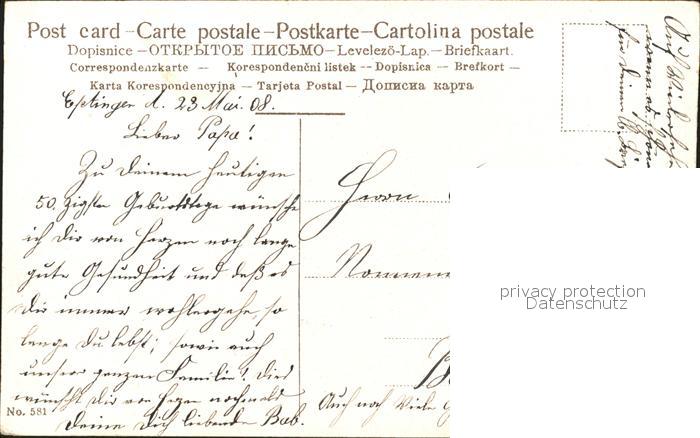 Post card – Carte postale – Postkarte – Cartolina postale
Dopisnice – ОТКРЫТОЕ ПИСЬМО – Levelező-Lap. – Briefkaart.
Correspondenzkarte – Korespondenční listek – Dopisnica – Brefkort –
Karta Korespondencyjna – Tarjeta Postal – Дописна карта
Eptingen d. 23 Mai. 08.
Lieber Papa!
Zu Deinem heutigen
50.zigsten Geburtstage wünsche
ich Dir von Herzen noch lange
gute Gesundheit und daß es
Dir immer wohlergehe, so
lange Du lebst; sowie auch
unserer ganzen Familie! Dies
wünscht Dir von Herzen nochmals
Deine Dich liebende Bab.
No. 581
Herrn
Auch noch viele
auf Wiedersehn
für Deinen
privacy protection
Datenschutz